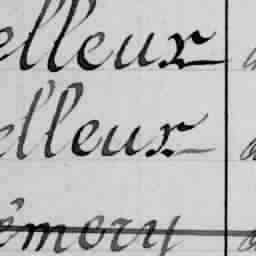 elleux
elleux
émery